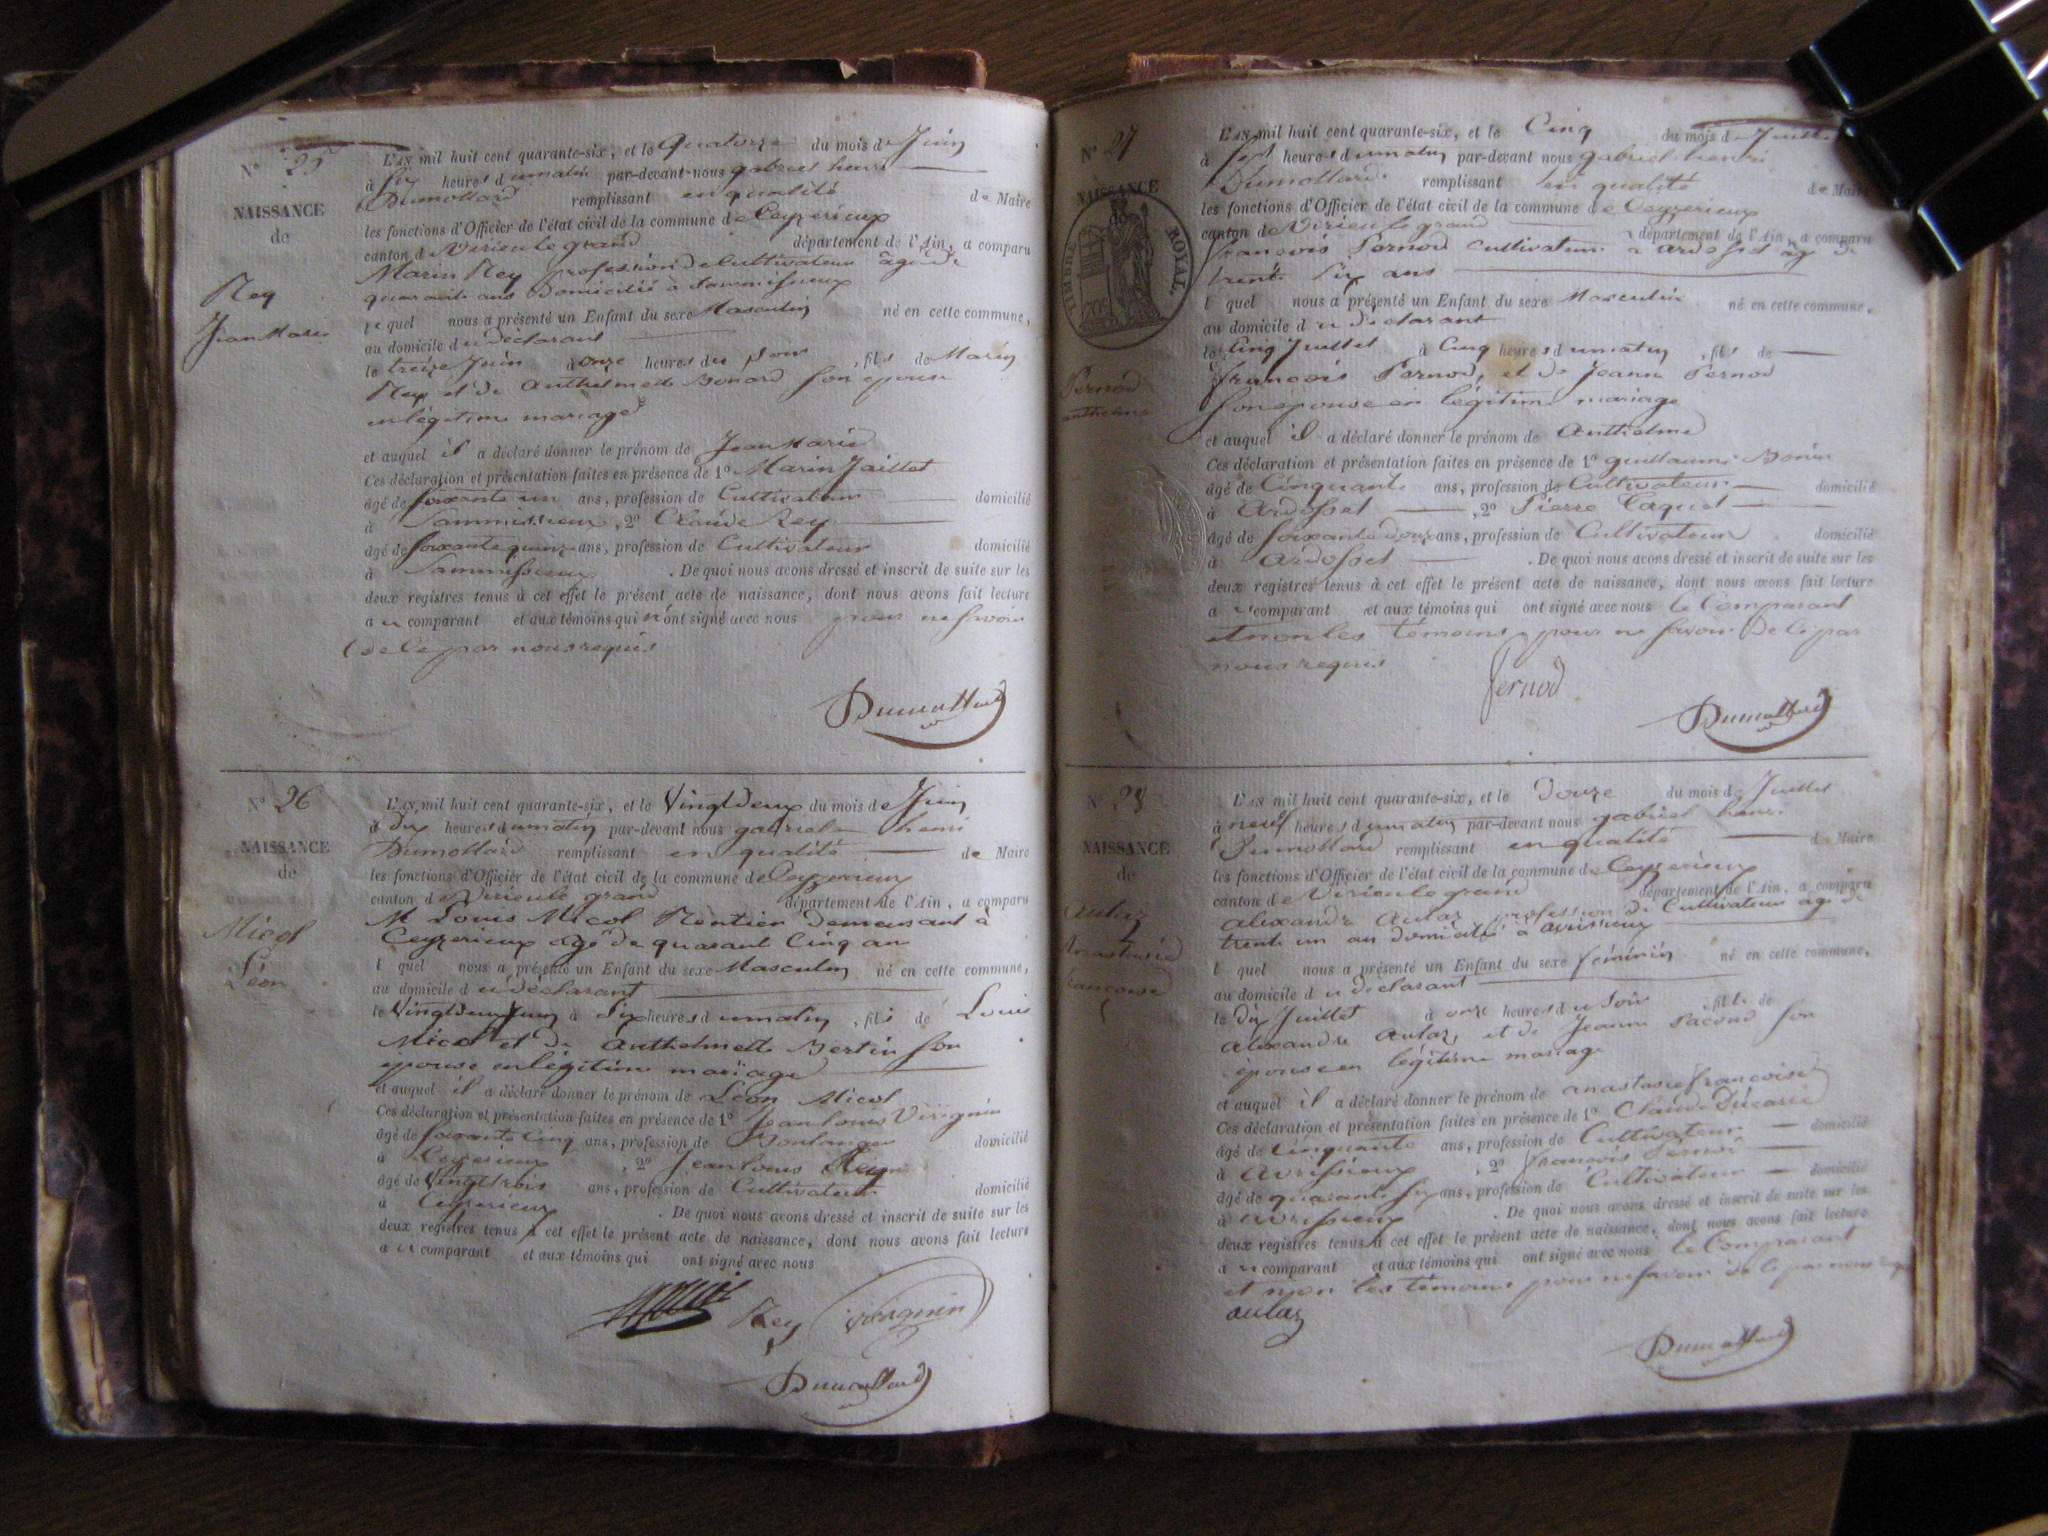 N° 25
NAISSANCE
de
Rey
Jean Marie
L'AN mil huit cent quarante-six, et le Quatorze du mois de Juin
à six heures du matin par-devant nous gabriel henri
Dumollard remplissant en qualité de Maire
les fonctions d'Officier de l'état civil de la commune de Ceyzerieux
canton de Virieu le grand département de l'Ain, a comparu
Marin Rey profession de Cultivateur âgé de
quarante ans Domicilié à
l equel nous a présenté un Enfant du sexe Masculin né en cette commune,
au domicile du déclarant
le treize Juin à onze heures du soir, fils de Marin
Rey et de Anthelmette Bonard son epouse
en légitime mariage
et auquel il a déclaré donner le prénom de Jean Marie
Ces déclaration et présentation faites en présence de 1° Marin Jaillet
âgé de soixante un ans, profession de Cultivateur domicilié
à Sammissieux, 2° Claude Rey
âgé de soixante quinze ans, profession de Cultivateur domicilié
à Sammissieux. De quoi nous avons dressé et inscrit de suite sur les
deux registres tenus à cet effet le présent acte de naissance, dont nous avons fait lecture
au comparant et aux témoins qui n'ont signé avec nous pour ne savoir
de ce par nous requis
Dumollard
N° 26
NAISSANCE
de
Micol
Léon
L'AN mil huit cent quarante-six, et le Vingt deux du mois de Juin
à dix heures du matin par-devant nous gabriel henri
Dumollard remplissant en qualité de Maire
les fonctions d'Officier de l'état civil de la commune de Ceyzerieux
canton de Virieu le grand département de l'Ain, a comparu
M Louis Micol Rentier Demeurant à
Ceyzerieux agé de quarant Cinq an
l quel nous a présenté un Enfant du sexe Masculin né en cette commune,
au domicile du déclarant
le Vingt deux Juin à Six heures du matin, fils de Louis
Micol et de Anthelmette Bertin son
epouse en légitime mariage
et auquel il a déclaré donner le prénom de Léon Micol
Ces déclaration et présentation faites en présence de 1° Jean louis Virignin
âgé de soixante Cinq ans, profession de Boulanger domicilié
à Ceyzerieux, 2° Jean louis Rey
âgé de Vingt trois ans, profession de Cultivateur domicilié
à Ceyzerieux. De quoi nous avons dressé et inscrit de suite sur les
deux registres tenus à cet effet le présent acte de naissance, dont nous avons fait lecture
au comparant et aux témoins qui ont signé avec nous
Rey Virignin
Dumollard
N° 27
NAISSANCE
de
TIMBRE ROYAL
Pernod
anthelme
L'AN mil huit cent quarante-six, et le Cinq du mois de Juillet
à sept heures du matin par-devant nous gabriel henri
Dumollard remplissant en qualité de Maire
les fonctions d'Officier de l'état civil de la commune de Ceyzerieux
canton de Virieu le grand département de l'Ain, a comparu
françois Pernod Cultivateur à ardosset âg de
trente Six ans
l quel nous a présenté un Enfant du sexe Masculin né en cette commune,
au domicile du déclarant
le Cinq Juillet à Cinq heures du matin, fils de
françois Pernod, et de Jeanne Pernod
son epouse en légitime mariage
et auquel il a déclaré donner le prénom de Anthelme
Ces déclaration et présentation faites en présence de 1° guillaume
âgé de Cinquante ans, profession de Cultivateur domicilié
à Ardosset, 2° Pierre Caquet
âgé de soixante douze ans, profession de Cultivateur domicilié
à Ardosset. De quoi nous avons dressé et inscrit de suite sur les
deux registres tenus à cet effet le présent acte de naissance, dont nous avons fait lecture
au comparant et aux témoins qui ont signé avec nous le Comparant
et non les témoins pour ne savoir de ce par
nous requis
Pernod
Dumollard
N° 28
NAISSANCE
de
Aulaz
Anastasie
francoise
L'AN mil huit cent quarante-six, et le Douze du mois de Juillet
à neuf heures du matin par-devant nous gabriel henri
Dumollard remplissant en qualité de Maire
les fonctions d'Officier de l'état civil de la commune de Ceyzerieux
canton de Virieu le grand département de l'Ain, a comparu
alexandre Aulaz, profession de Cultivateur âgé de
trente un an domicilié à avrissieux
l quel nous a présenté un Enfant du sexe féminin né en cette commune,
au domicile du déclarant
le dix Juillet à onze heures du Soir, fille de
alexandre Aulaz, et de Jeanne Pacoud son
épouse en légitime mariage
et auquel il a déclaré donner le prénom de anastasie françoise
Ces déclaration et présentation faites en présence de 1° Claude
âgé de Cinquante ans, profession de Cultivateur domicilié
à Avrissieux, 2° françois
âgé de quarante six ans, profession de Cultivateur domicilié
à avrissieux. De quoi nous avons dressé et inscrit de suite sur les
deux registres tenus à cet effet le présent acte de naissance, dont nous avons fait lecture
au comparant et aux témoins qui ont signé avec nous le Comparant
et non les témoins pour ne savoir de ce par nous requis
aulaz
Dumollard